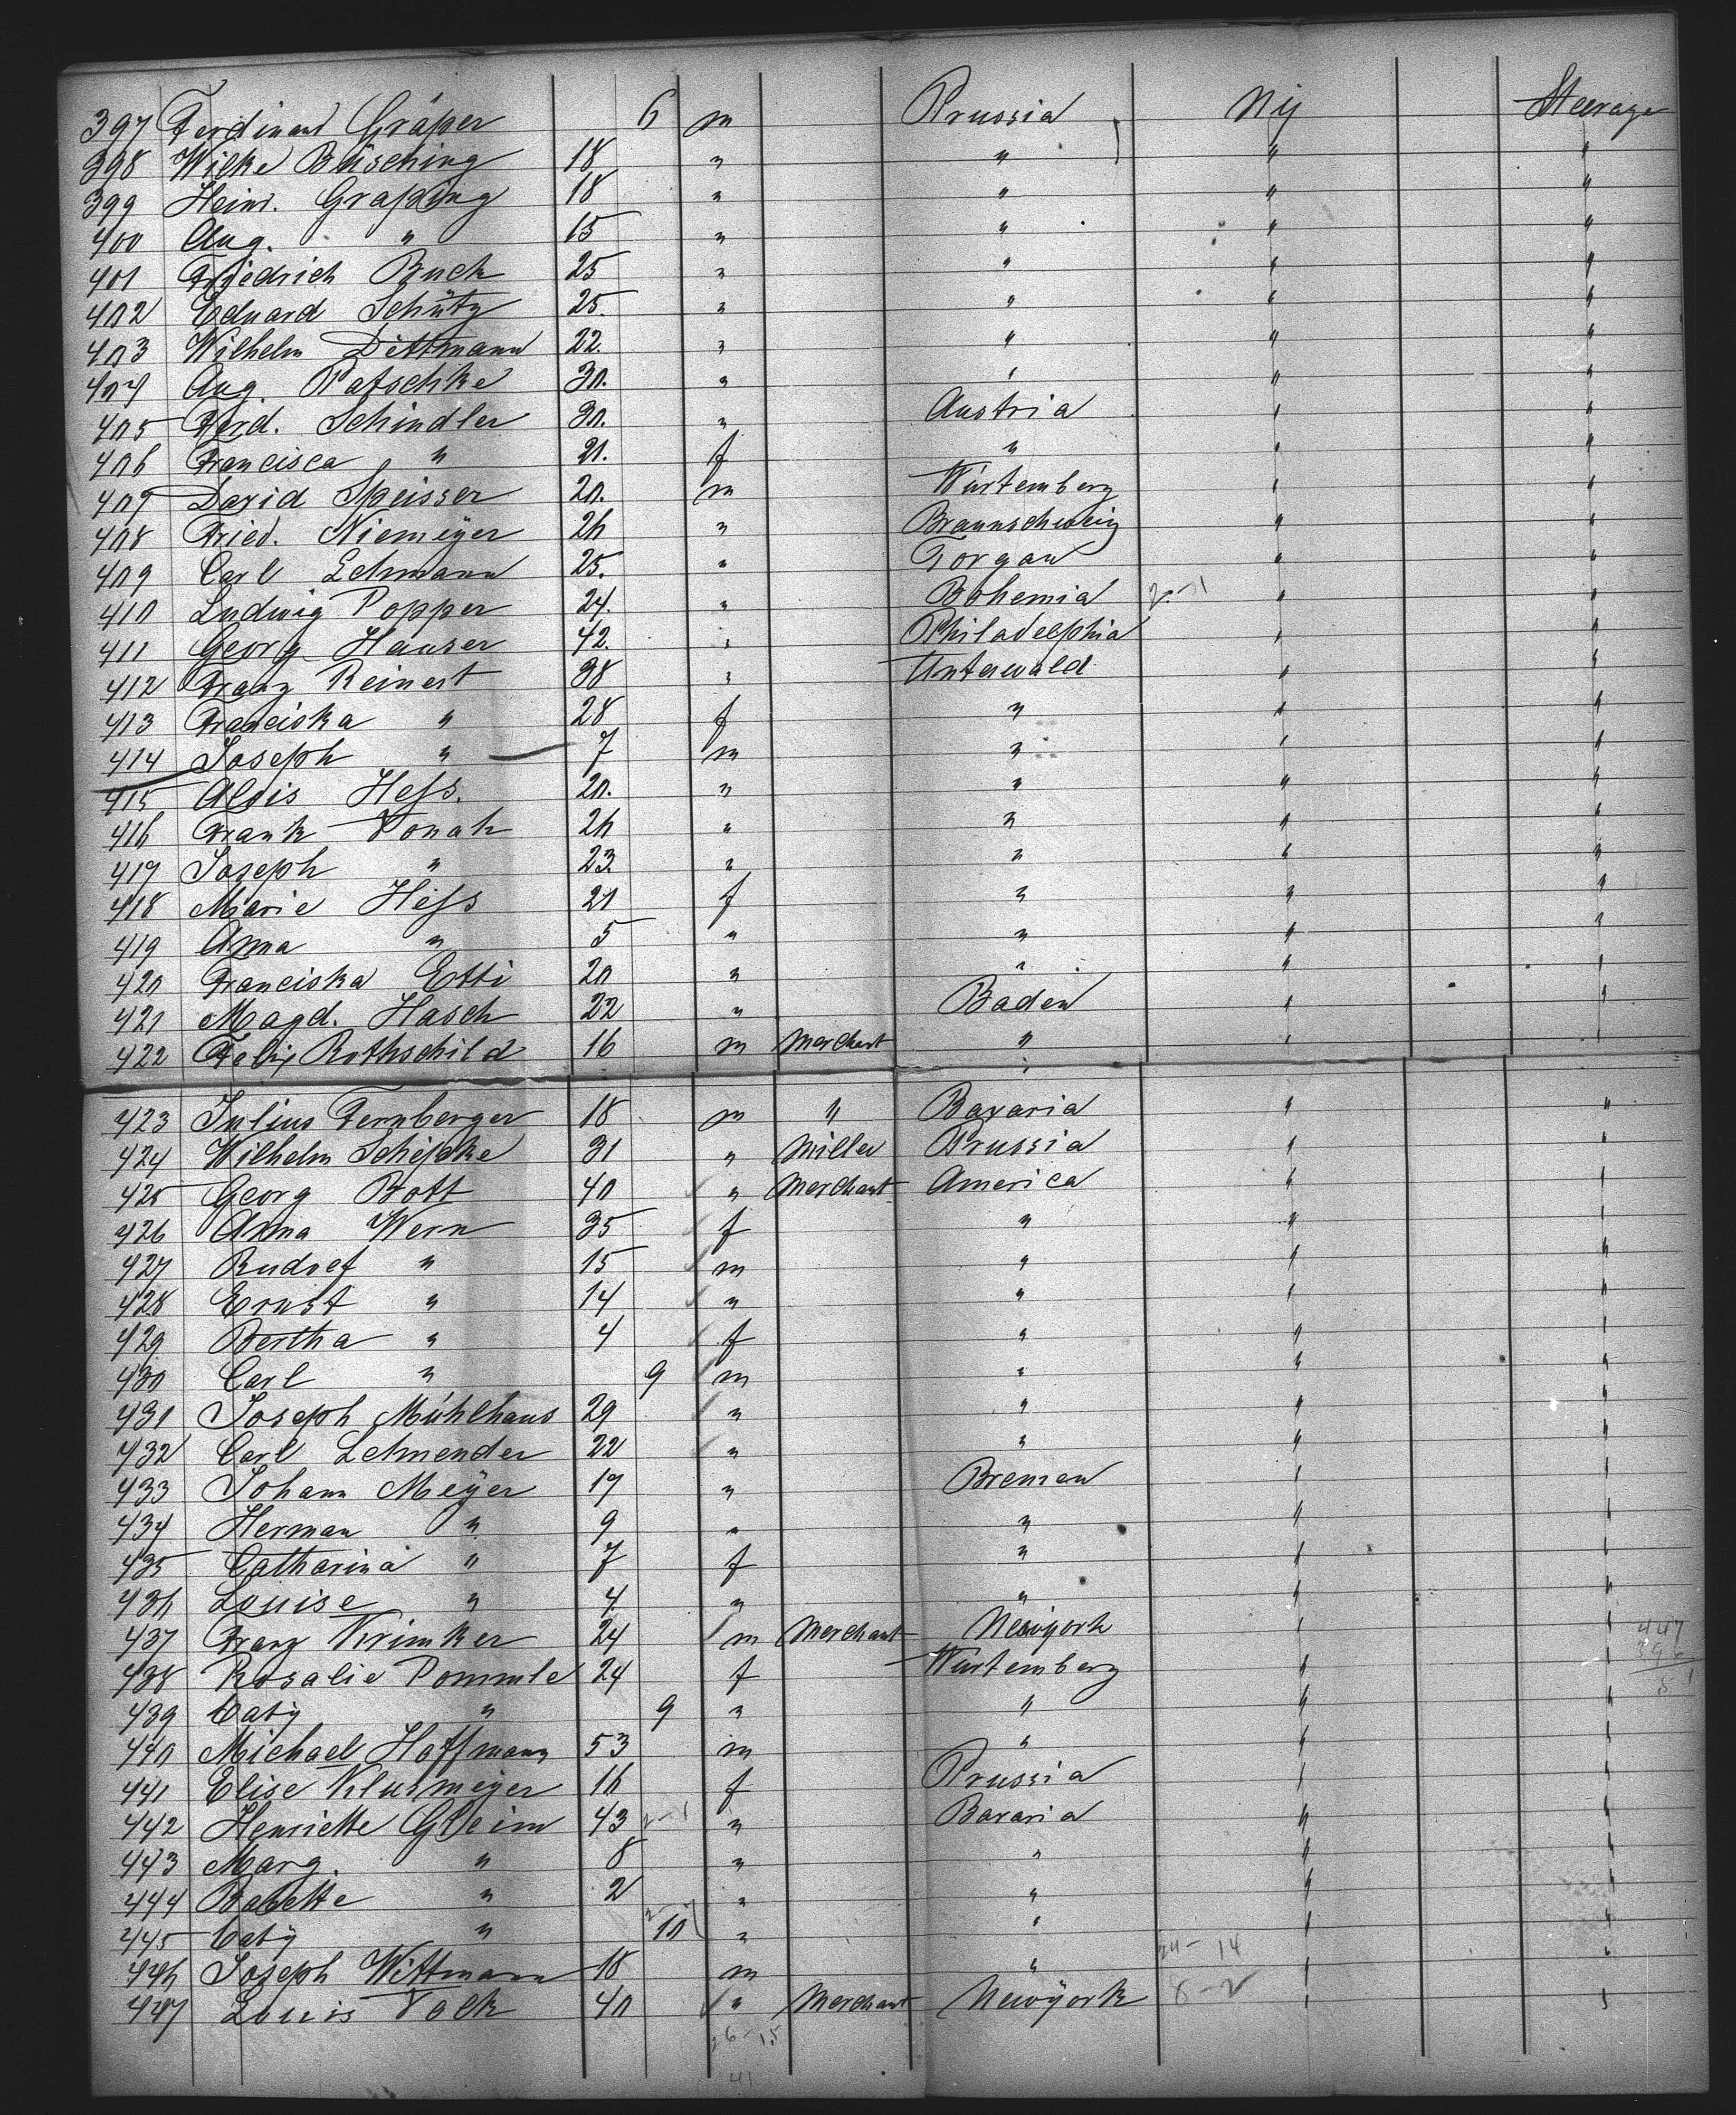 397 Ferdinand Gräper 6 m Prussia Ny Steerage
398 Wilke Büsching 18 " " " "
399 Heinr. Graßing 18 " " " "
400 Aug. " 15 " " " "
401 Friedrich Buck 25 " " " "
402 Eduard Schütz 25. " " " "
403 Wilhelm Dettmann 22. " " " "
404 Aug. Patschke 30. " " " "
405 Ferd. Schindler 30. " Austria " "
406 Francisca " 21. f " " "
407 David Speisser 20. m Würtemberg " "
408 Fried. Niemeÿer 26 " Braunschweig " "
409 Carl Lehmann 25. " Torgau " "
410 Ludwig Popper 24. " Bohemia 2-1 " "
411 Georg Hauser 42. " Philadelphia " "
412 Franz Reinert 38 " Unterwald " "
413 Franciska " 28 f " " "
414 Joseph " 7 m " " "
415 Alois Heſs. 20. " " " "
416 Frank Vonah 26 " " " "
417 Joseph " 23. " " " "
418 Marie Heſs 21 f " " "
419 Anna " 5 " " " "
420 Franciska Etti 20 " " " "
421 Magd. Hasch 22 " Baden " "
422 Felix Rothschild 16 m Merchant " " "
423 Julius Fernberger 18 m " Bavaria " "
424 Wilhelm Schepke 31 " Miller Prussia " "
425 Georg Bott 40 " Merchant America " "
426 Anna Wern 35 f " " "
427 Rudolf " 15 m " " "
428 Ernst " 14 " " " "
429 Bertha " 4 f " " "
430 Carl " 9 m " " "
431 Joseph Mühlhaus 29 " " " "
432 Carl Lehmender 22 " " " "
433 Johann Meÿer 17 " Bremen " "
434 Herman " 9 " " " "
435 Catharina " 7 f " " "
436 Louise " 4. " " " "
437 Franz Krimker 24 m Merchant Newyork " " 447
438 Rosalie Pommle 24 f Würtemberg " " 396
439 Caty " 9 " " " " 51
440 Michael Hoffmann 53 m " " "
441 Elise Klusmeyer 16 f Prussia " "
442 Henriette Gleim 43 2-1 " Bavaria " "
443 Marg. " 8 " " " "
444 Babette " 2 " " " "
445 Caty " 10 " " " "
446 Joseph Wittmann 18 m " 24-14 " "
447 Louis Volk 40 " Merchant Newÿork 8-2 " "
26-15
41